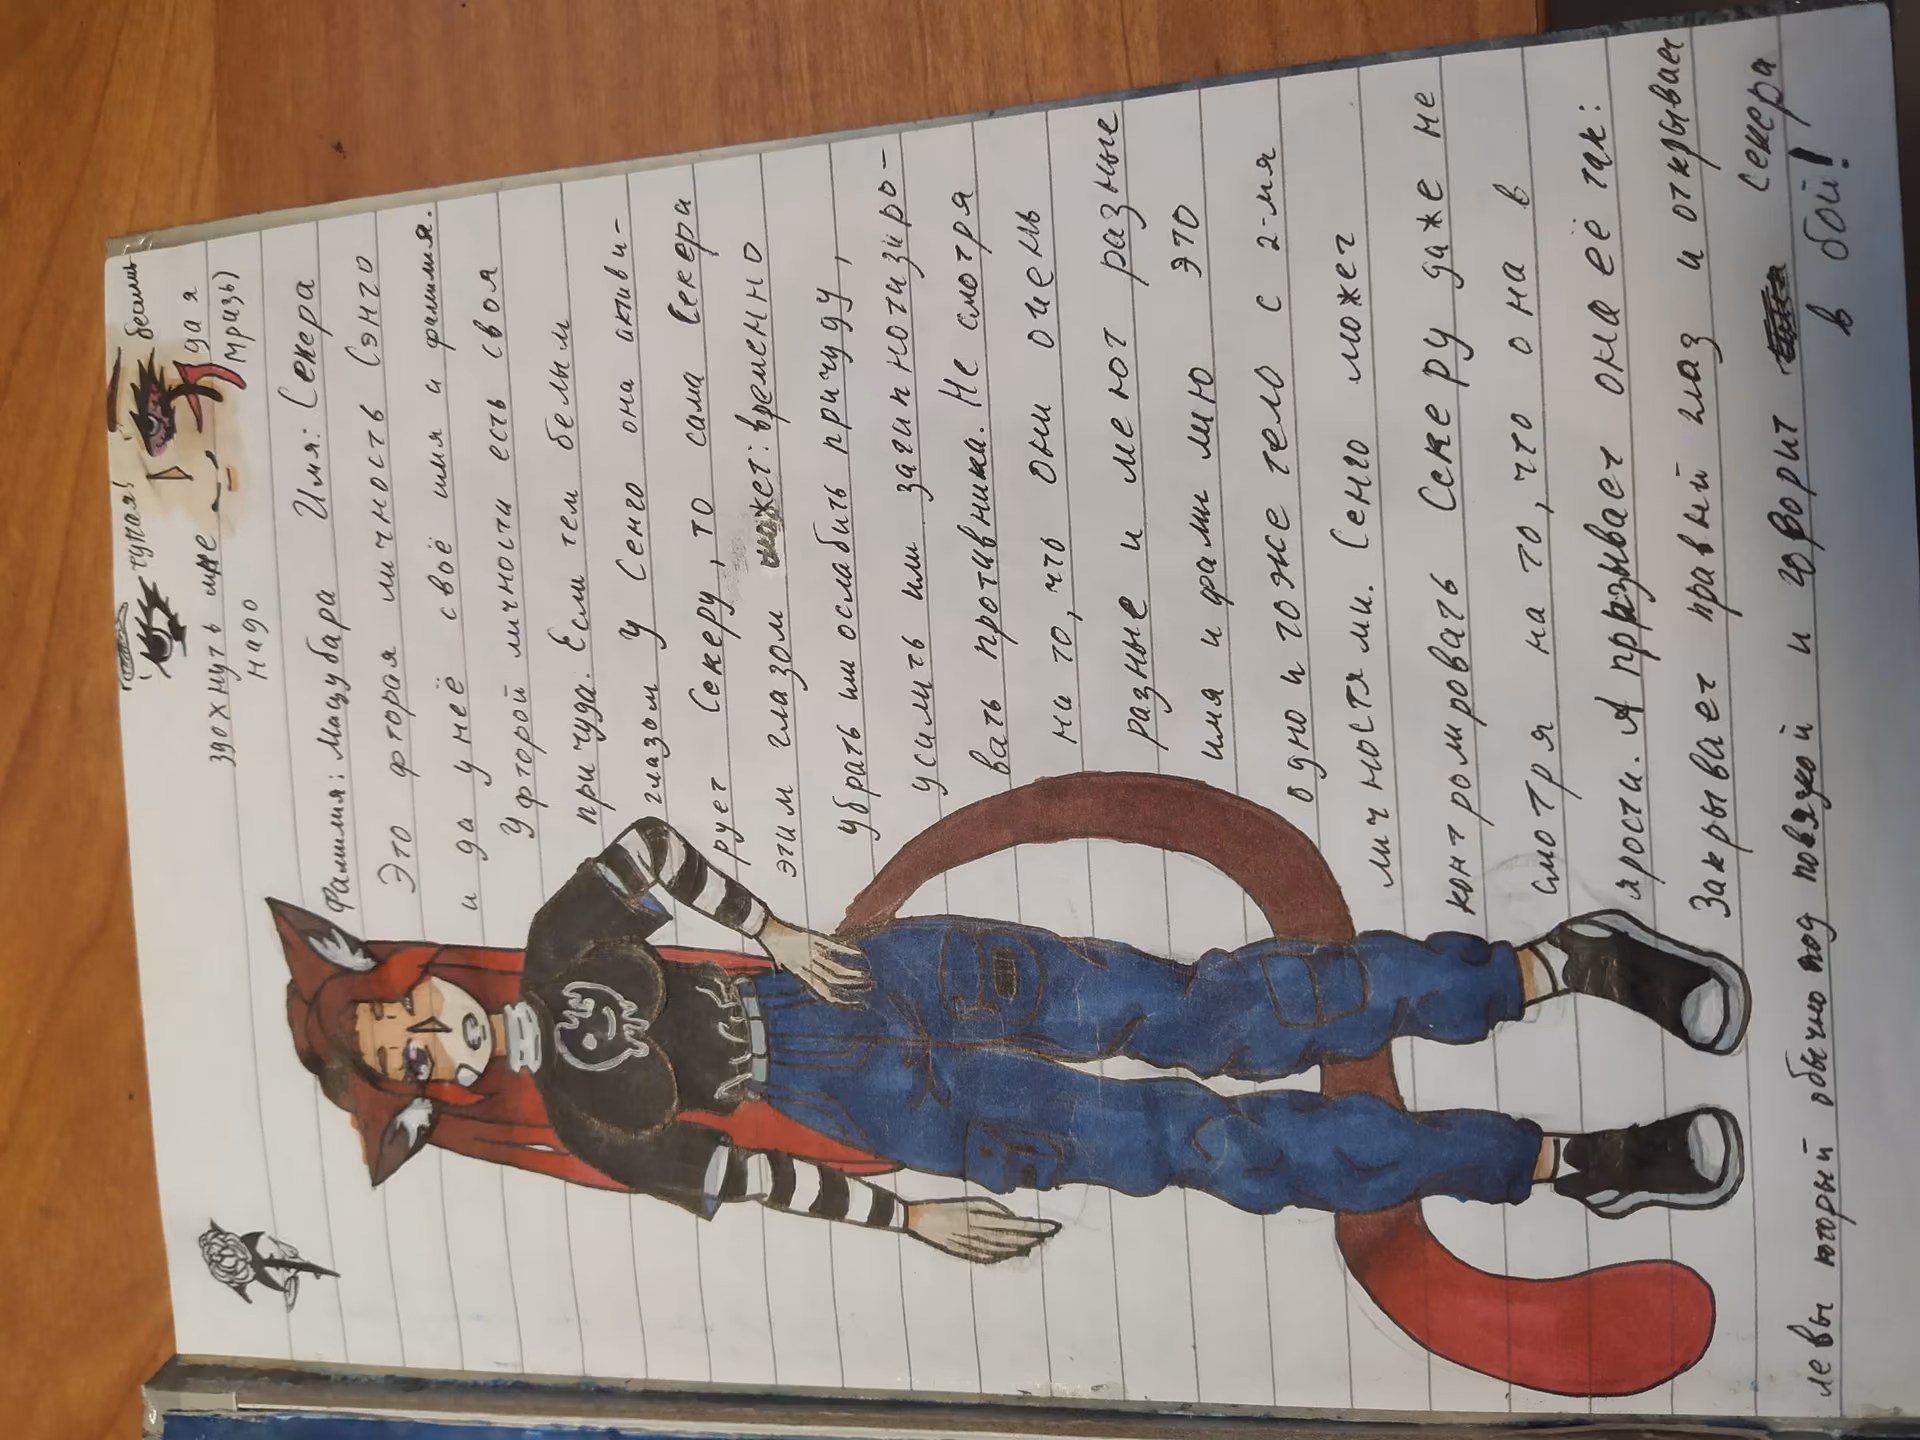 чупая! бешинь
здохнуть мне дая
надо мризы)
Фамилия: Мацубара Имя: Секера
Это фторая личность Сэнго
и да у неё своё имя и фамилия.
У фторой личности есть своя
причуда. Если тем белым
глазом у Сенго она активи-
рует Секеру, то сама Секера
этим глазом может: временно
убрать или ослабить причуду,
усилить или загипнотизиро-
вать противника. Не смотря
на то, чть они очень
разные и меют разные
имя и фамилию это
одно и тоже тело с 2-мя
личностями. Сенго может
контролировать Секеру даже не
смотря на то, что она в
ярости. А призывает она её так:
Закрывает правый глаз и открывает
левы который обычно под повязкой и говорит Секера
в бой!